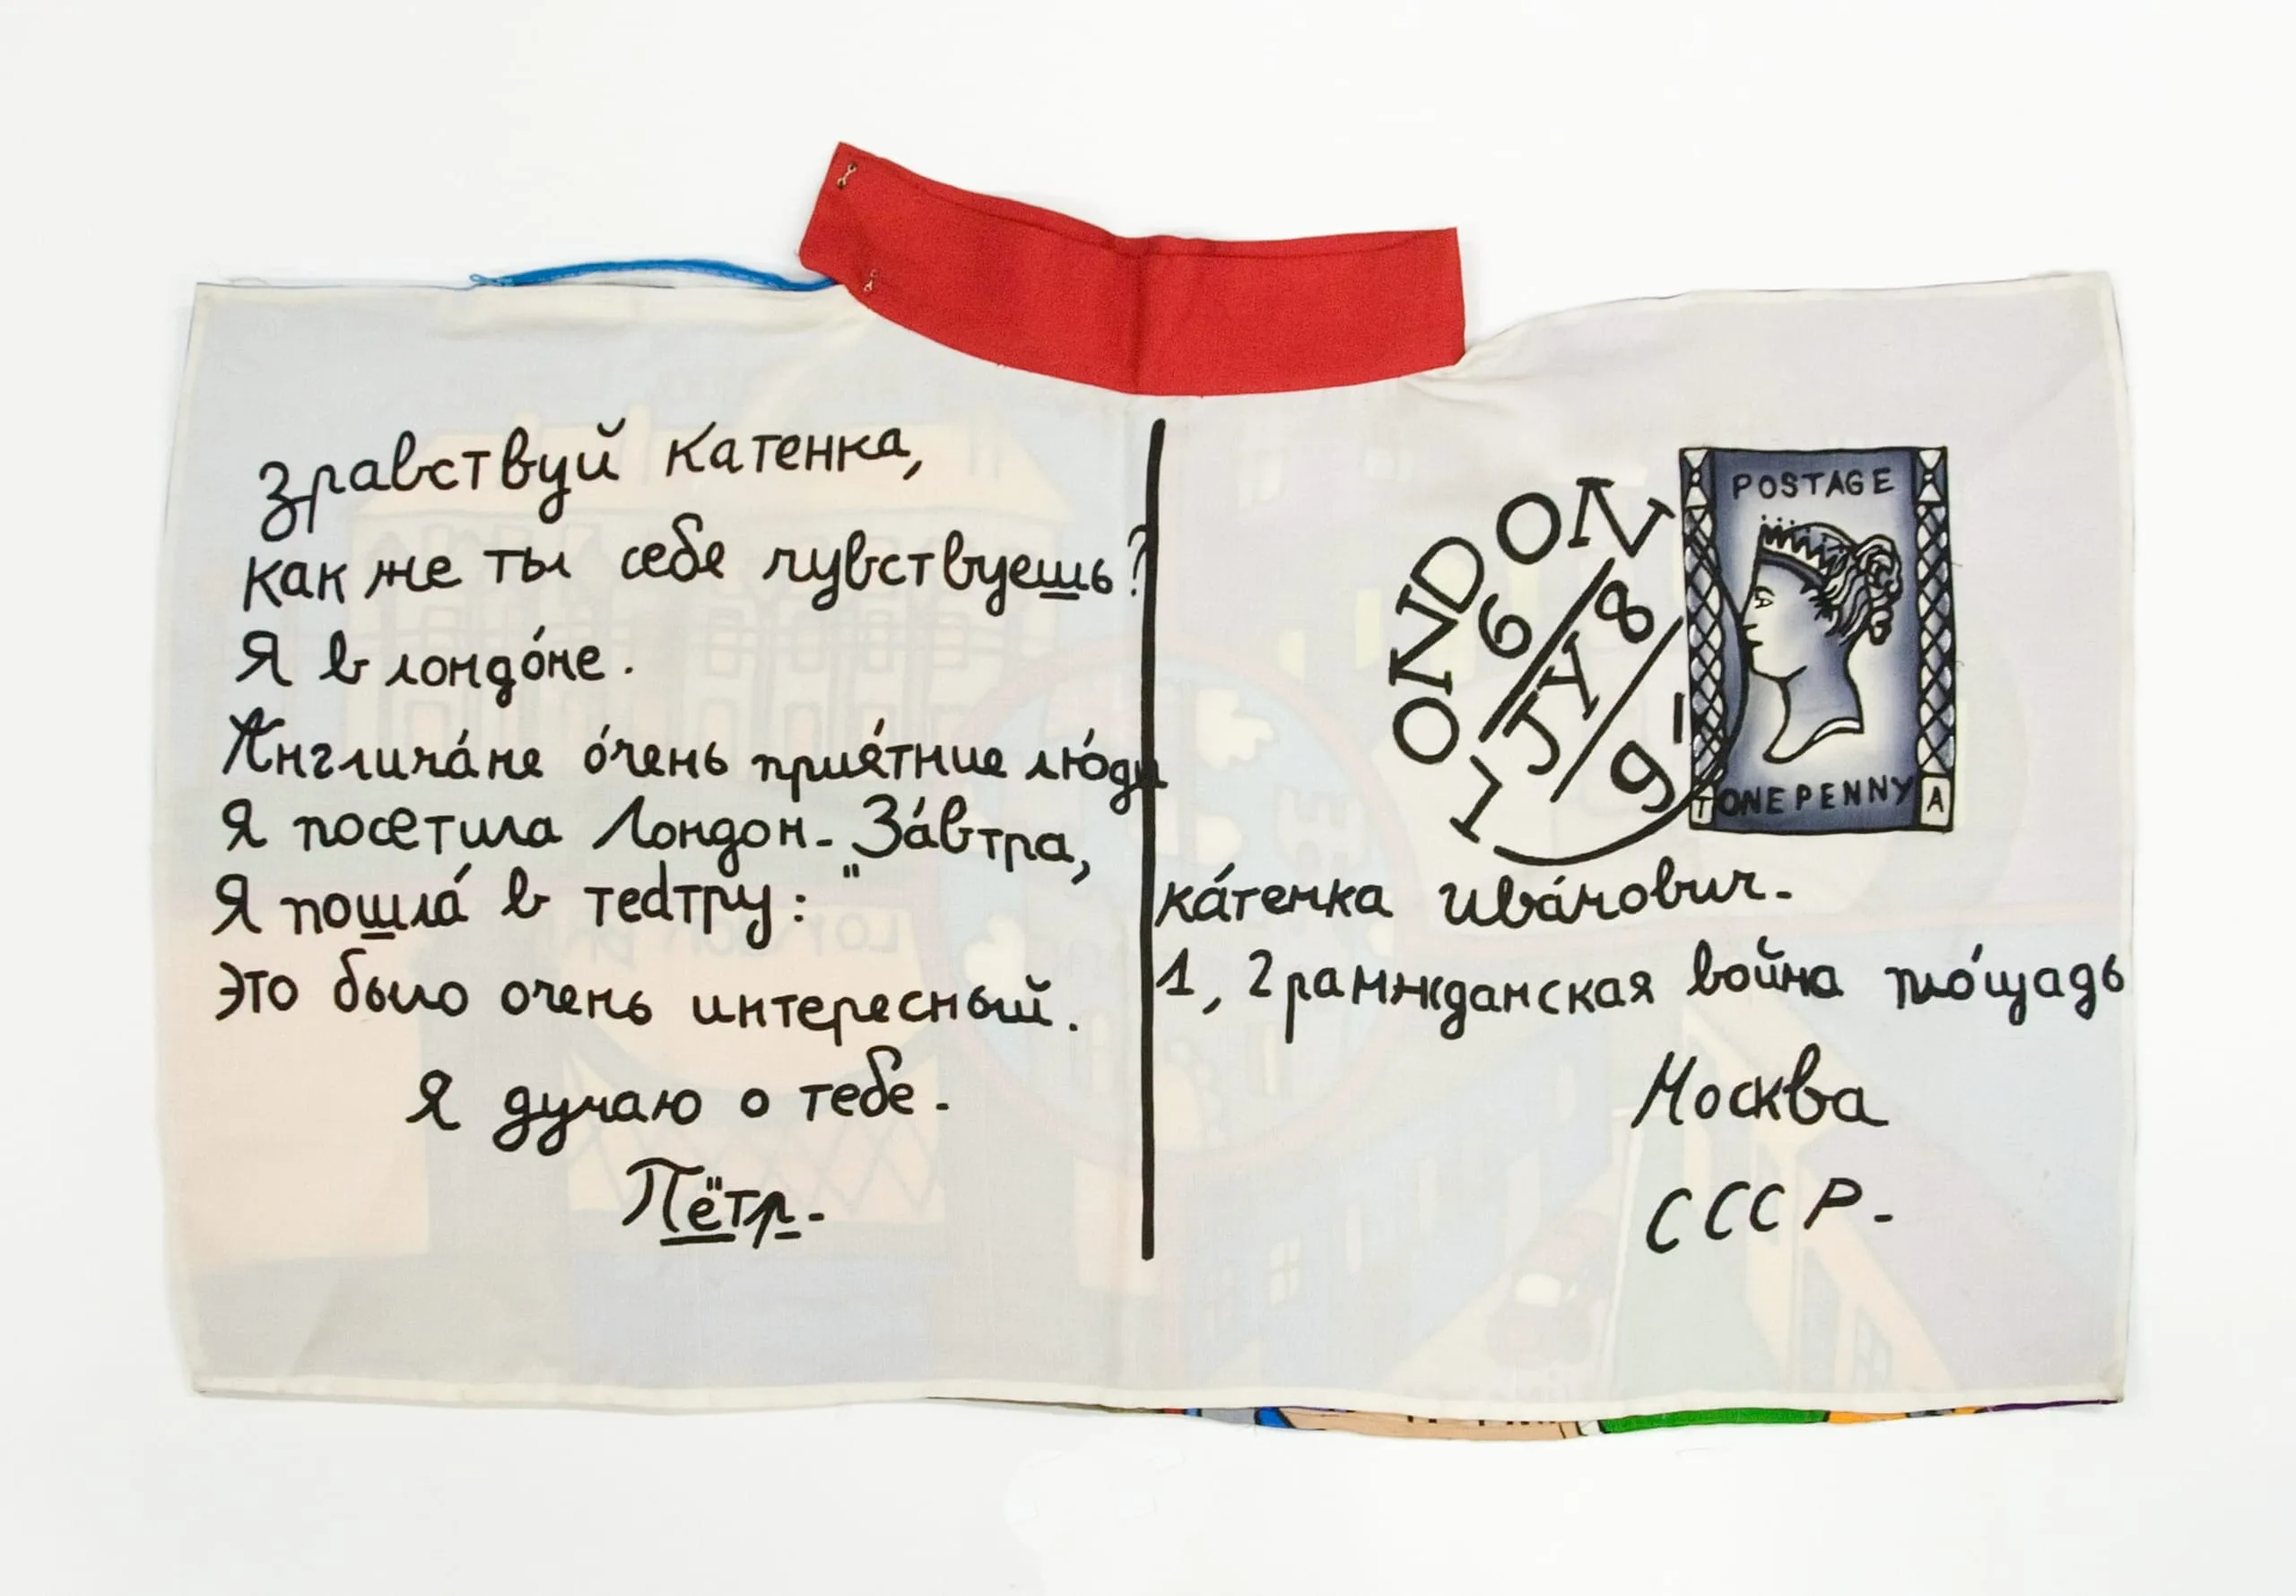 Здравствуй Катенка,
как же ты себе чувствуешь?
Я в лондо́не.
Англича́не о́чень прия́тние лю́ди
Я посетила Лондон- За́втра,
Я пошла́ в театру: "
Это было очень интересный.
Я думаю о тебе.
Пётр.
LONDON
6
JY 8
91
POSTAGE
T ONE PENNY A
ка́тенка ива́нович-
1, Гражданская война пло́щадь
Москва
СССР-